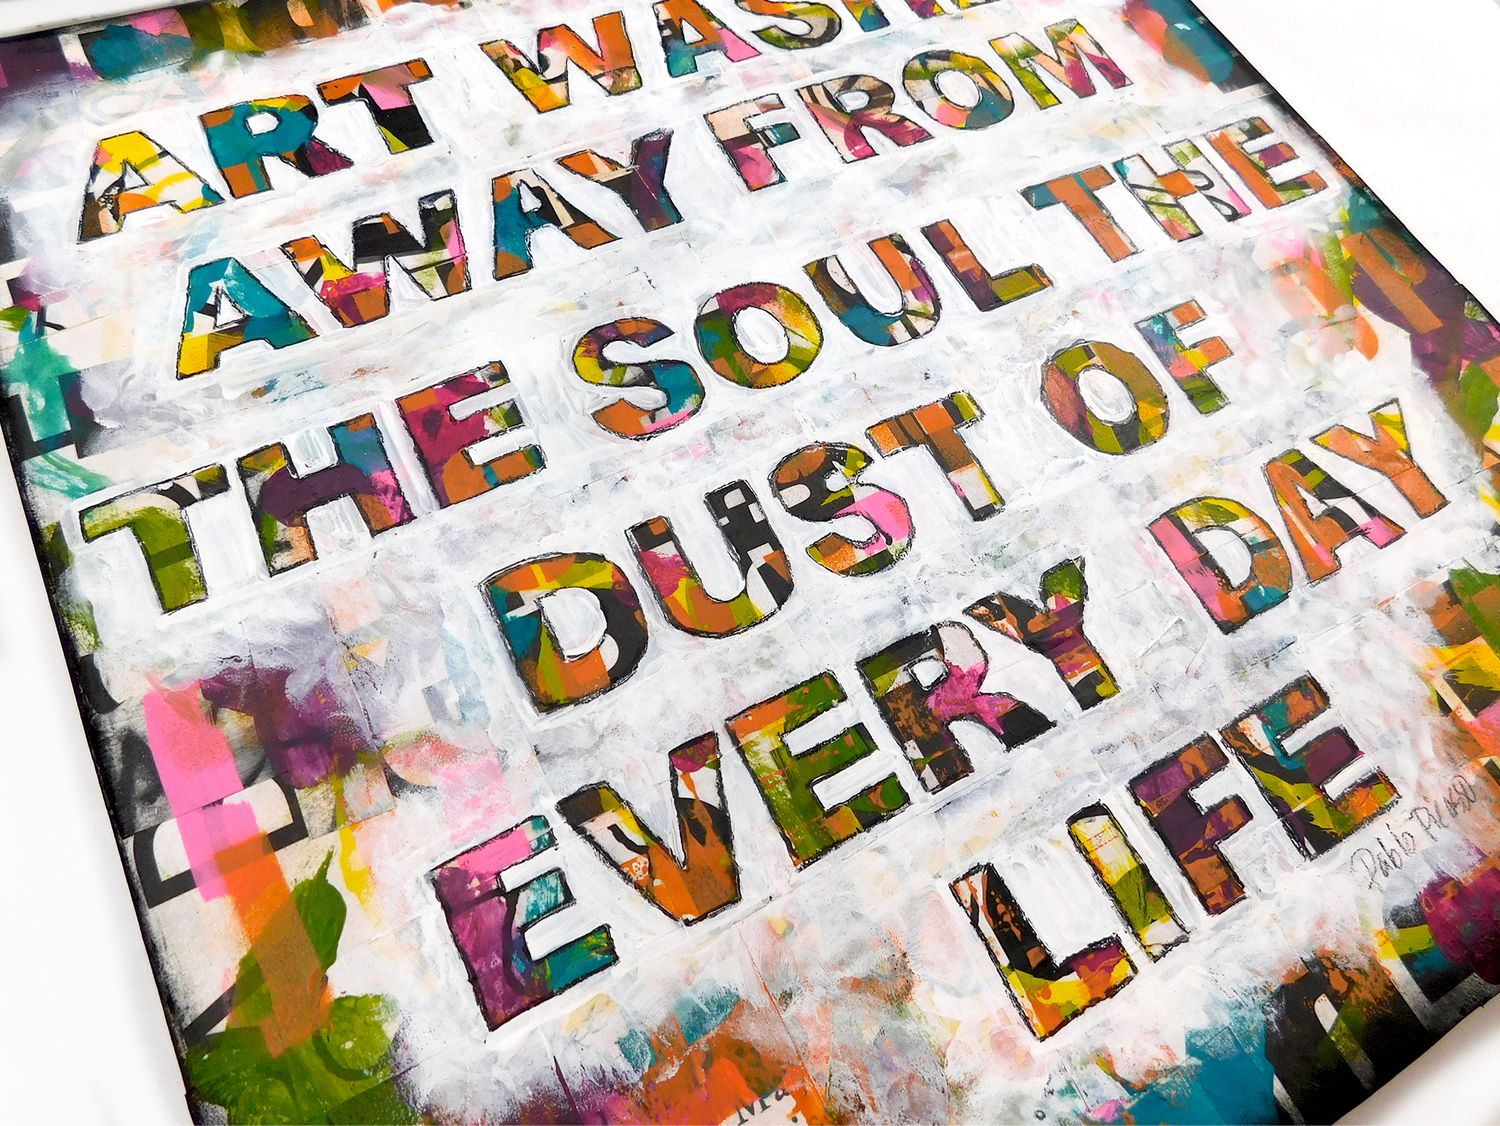 ART WASH
AWAY FROM
THE SOUL THE
DUST OF
EVERY DAY
LIFE
Pablo Picasso